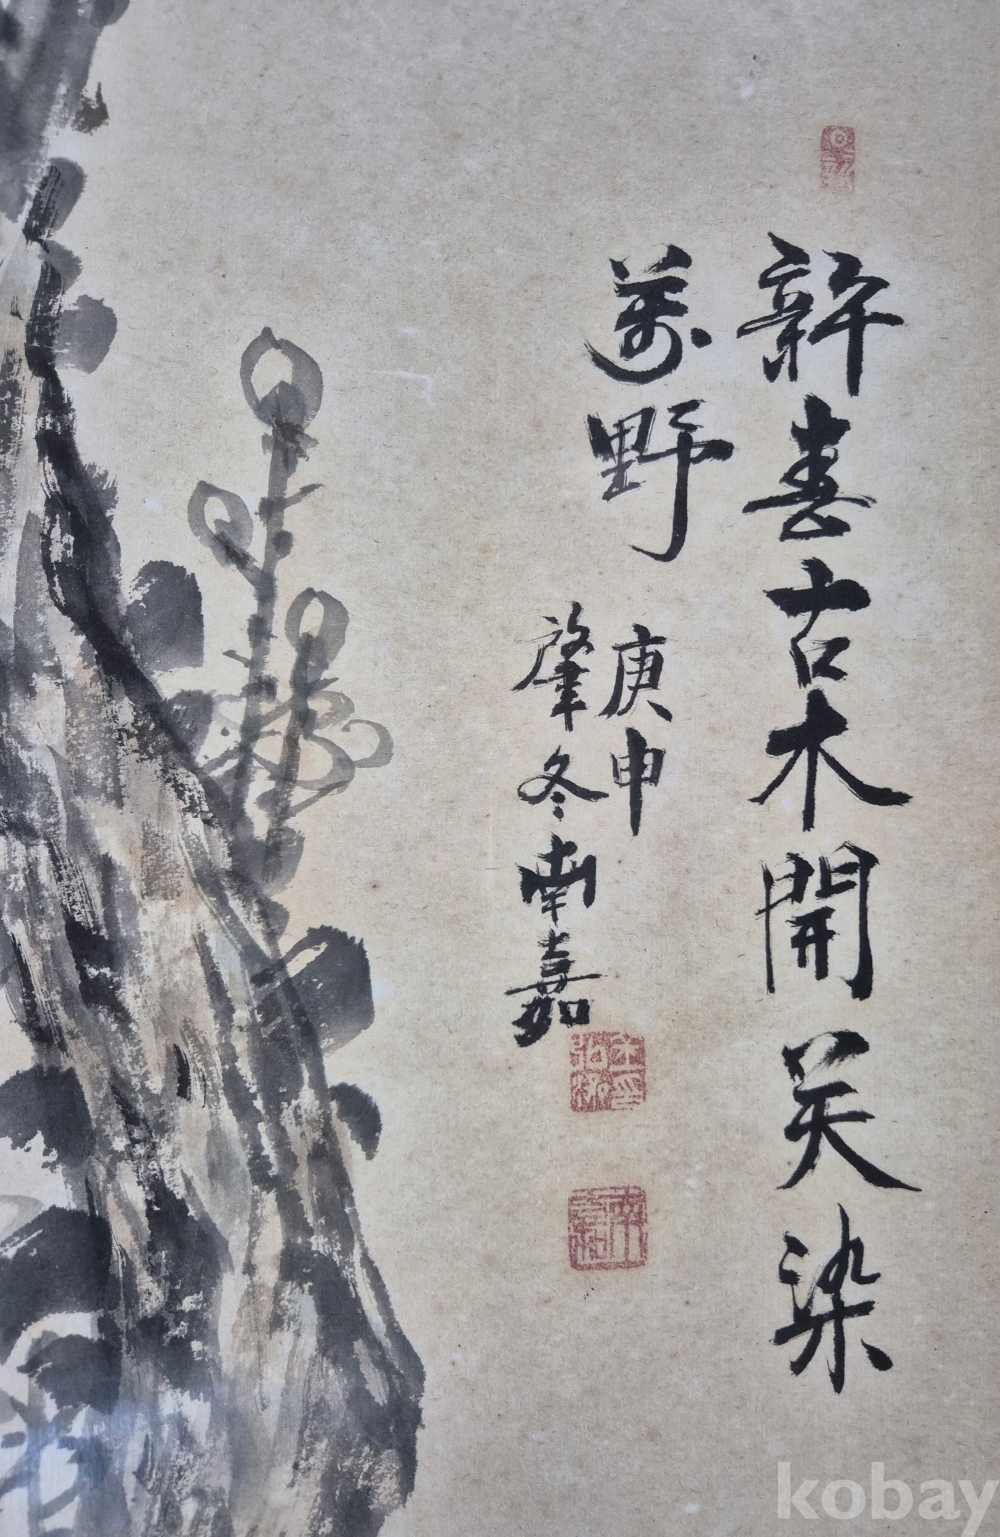 新喜古木開芙染
萬野
庚申
肇冬南嘉
kobay